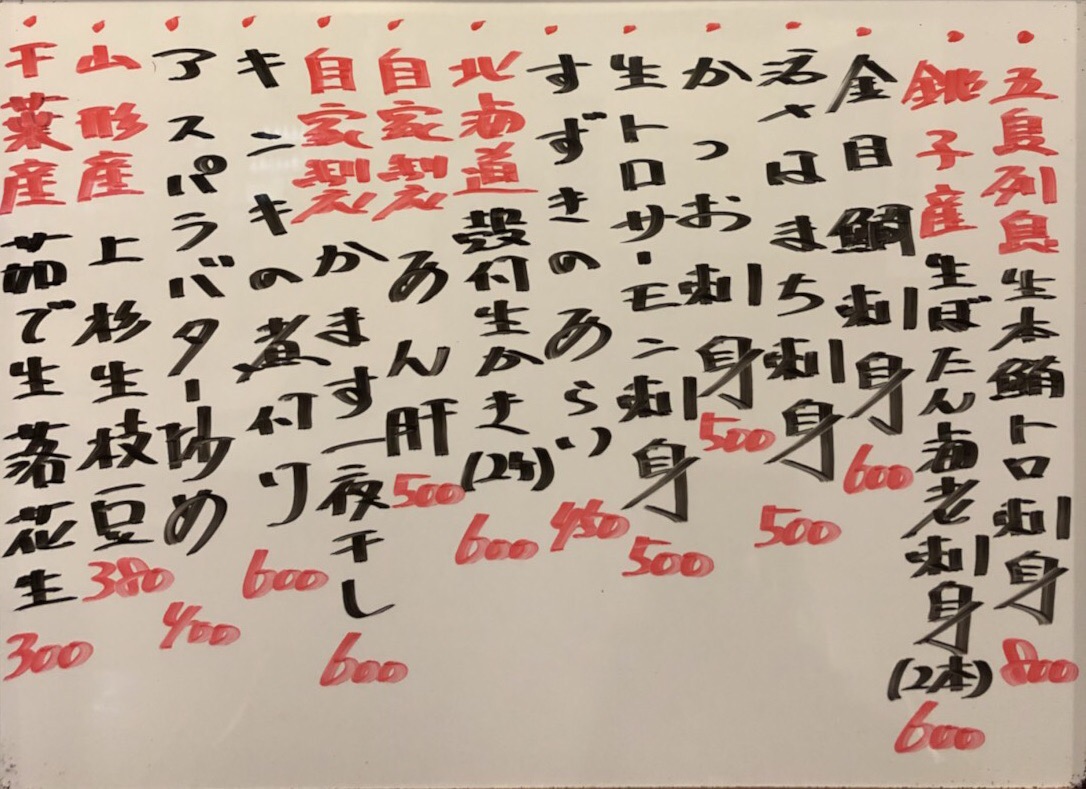 ・五島列島 生本鮪トロ刺身 800
・銚子産 生ぼたん海老刺身(2本) 600
・金目鯛刺身 600
・はまち刺身 500
・かつお刺身 500
・生トロサーモン刺身 500
・すずきのあらい 450
・北海道 殻付生かき(2ケ) 600
・自家製 あん肝 500
・自家製 かます一夜干し 600
・キンキの煮付け 600
・アスパラバター炒め 400
・山形産 上杉生枝豆 380
・千葉産 茹で生落花生 300